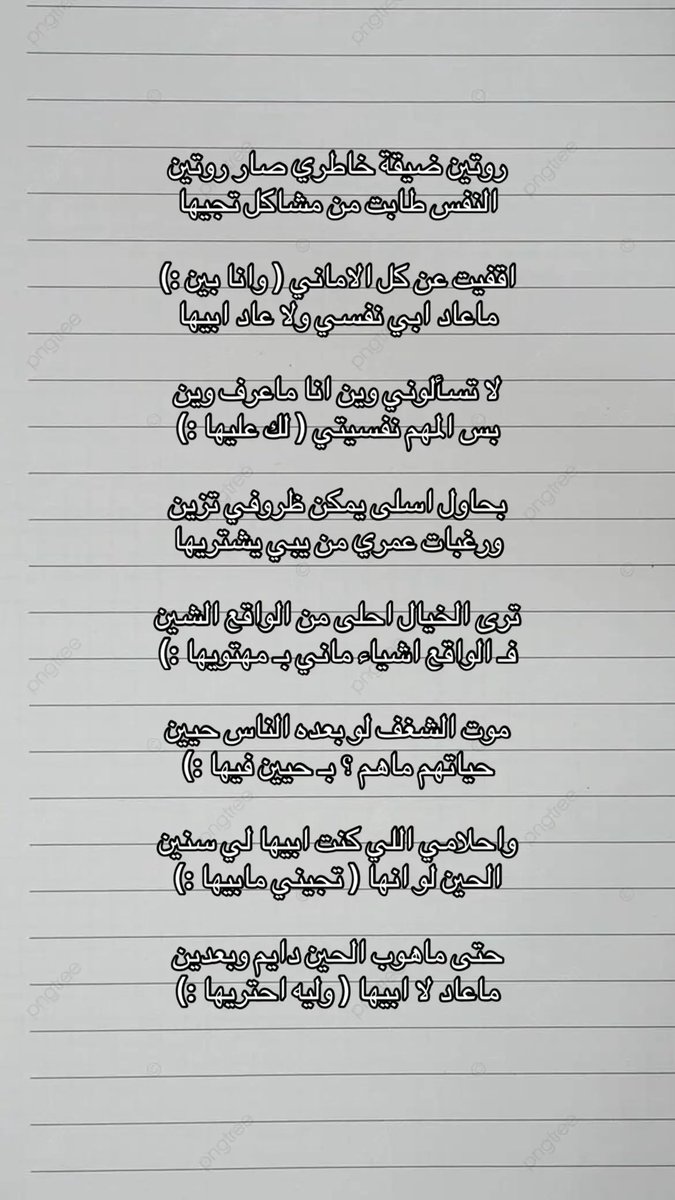 روتين ضيقة خاطري صار روتين
النفس طابت من مشاكل تجيها
اقفيت عن كل الاماني ( وانا بين :)
ماعاد ابي نفسي ولا عاد ابيها
لا تسألوني وين انا ماعرف وين
بس المهم نفسيتي ( لك عليها :)
بحاول اسلى يمكن ظروفي تزين
ورغبات عمري من يبي يشتريها
ترى الخيال احلى من الواقع الشين
فـ الواقع اشياء ماني بـ مهتويها :)
موت الشغف لو بعده الناس حيين
حياتهم ماهم ؟ بـ حيين فيها :)
واحلامي اللي كنت ابيها لي سنين
الحين لو انها ( تجيني مابيها :)
حتى ماهوب الحين دايم وبعدين
ماعاد لا ابيها ( وليه احتريها :)